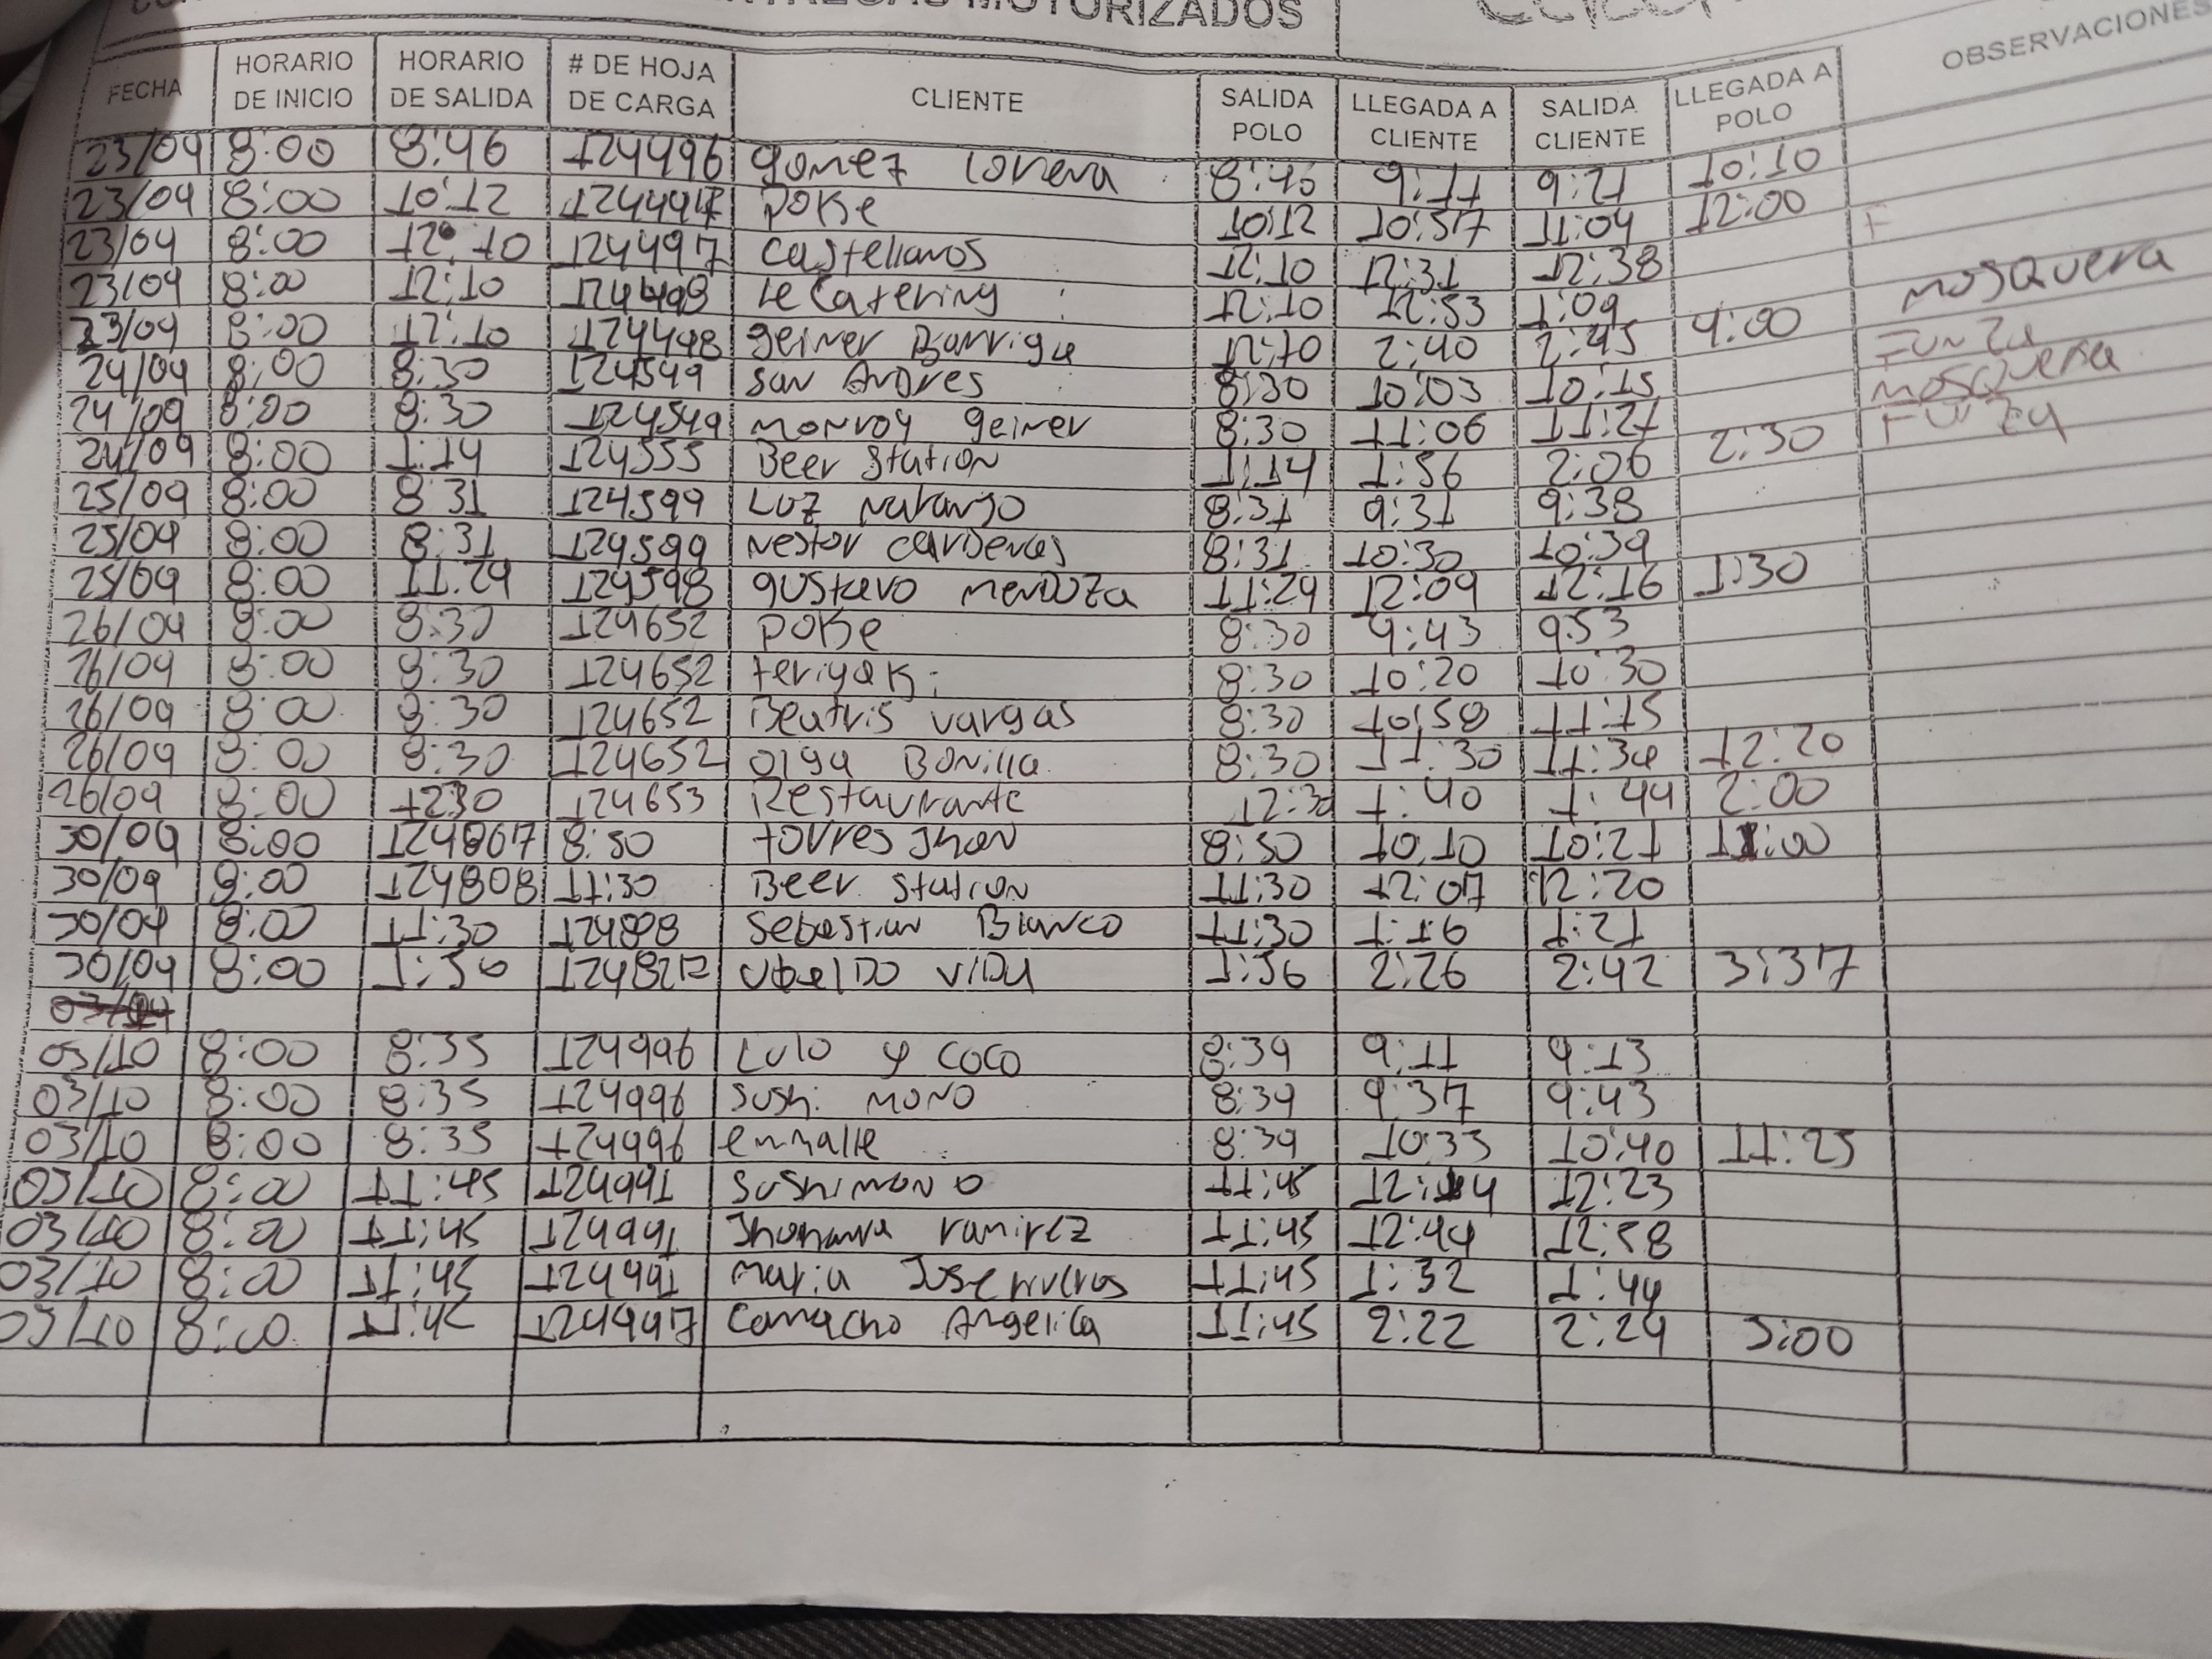 ENTREGAS MOTORIZADOS
FECHA HORARIO DE INICIO HORARIO DE SALIDA # DE HOJA DE CARGA CLIENTE SALIDA POLO LLEGADA A CLIENTE SALIDA CLIENTE LLEGADA A POLO OBSERVACIONES
23/09 8:00 8:46 124496 gomez Lorena 8:46 9:11 9:21 10:10
23/09 8:00 10:12 POKe 10:12 10:57 11:04 12:00
23/09 8:00 12:10 124497 castellanos 12:10 12:31 12:38
23/09 8:00 12:10 124498 le Catering 12:10 12:53 1:09 mosquera
23/09 8:00 12:10 124498 geiner Barriga 12:10 2:40 2:45 4:00 Funza
24/09 8:00 8:30 124549 san Andres 8:30 10:03 10:15 mosquera
24/09 8:00 8:30 124549 monroy geiner 8:30 11:06 11:21 Funza
24/09 8:00 1:14 124555 Beer station 1:14 1:56 2:06 2:30
25/09 8:00 8:31 124599 Luz naranjo 8:31 9:31 9:38
25/09 8:00 8:31 124599 nestor cardenas 8:31 10:30 10:39
25/09 8:00 11:24 124598 gustavo mendoza 11:24 12:09 12:16 1:30
26/09 8:00 8:30 124652 POKe 8:30 9:43 9:53
26/09 8:00 8:30 124652 teriyaki 8:30 10:20 10:30
26/09 8:00 8:30 124652 Beatris vargas 8:30 10:58 11:15
26/09 8:00 8:30 124652 olga Bonilla 8:30 11:30 11:34 12:20
26/09 8:00 12:30 124653 Restaurante 12:30 1:40 1:44 2:00
30/09 8:00 124807 8:50 torres Jhon 8:50 10:10 10:21 11:00
30/09 8:00 124808 11:30 Beer station 11:30 12:07 12:20
30/09 8:00 11:30 124808 sebastian Blanco 11:30 1:16 1:21
30/09 8:00 1:56 ubalDo viDa 1:56 2:26 2:42 3:37
03/10 8:00 8:35 124996 Lulo y coco 8:39 9:11 9:13
03/10 8:00 8:35 124996 sushi mono 8:39 9:37 9:43
03/10 8:00 8:35 124996 enmalle 8:39 10:33 10:40 11:25
03/10 8:00 11:45 sushimono 11:45 12:14 12:23
03/10 8:00 11:45 Jhohanna ramirez 11:45 12:44 12:58
03/10 8:00 11:45 maria Jose riveros 11:45 1:32 1:44
03/10 8:00 11:45 124997 Camacho Angelica 11:45 2:22 2:24 3:00